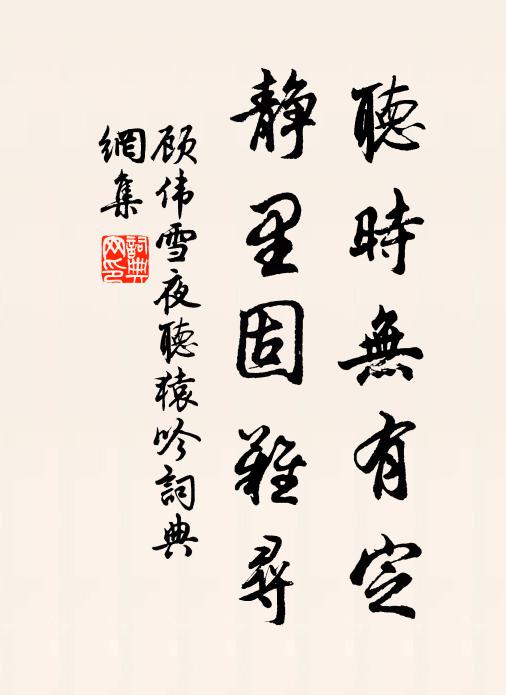 聽時無有定
静里固難尋
顾伟雪夜聽猿吟詞典
網集
詞典
网印